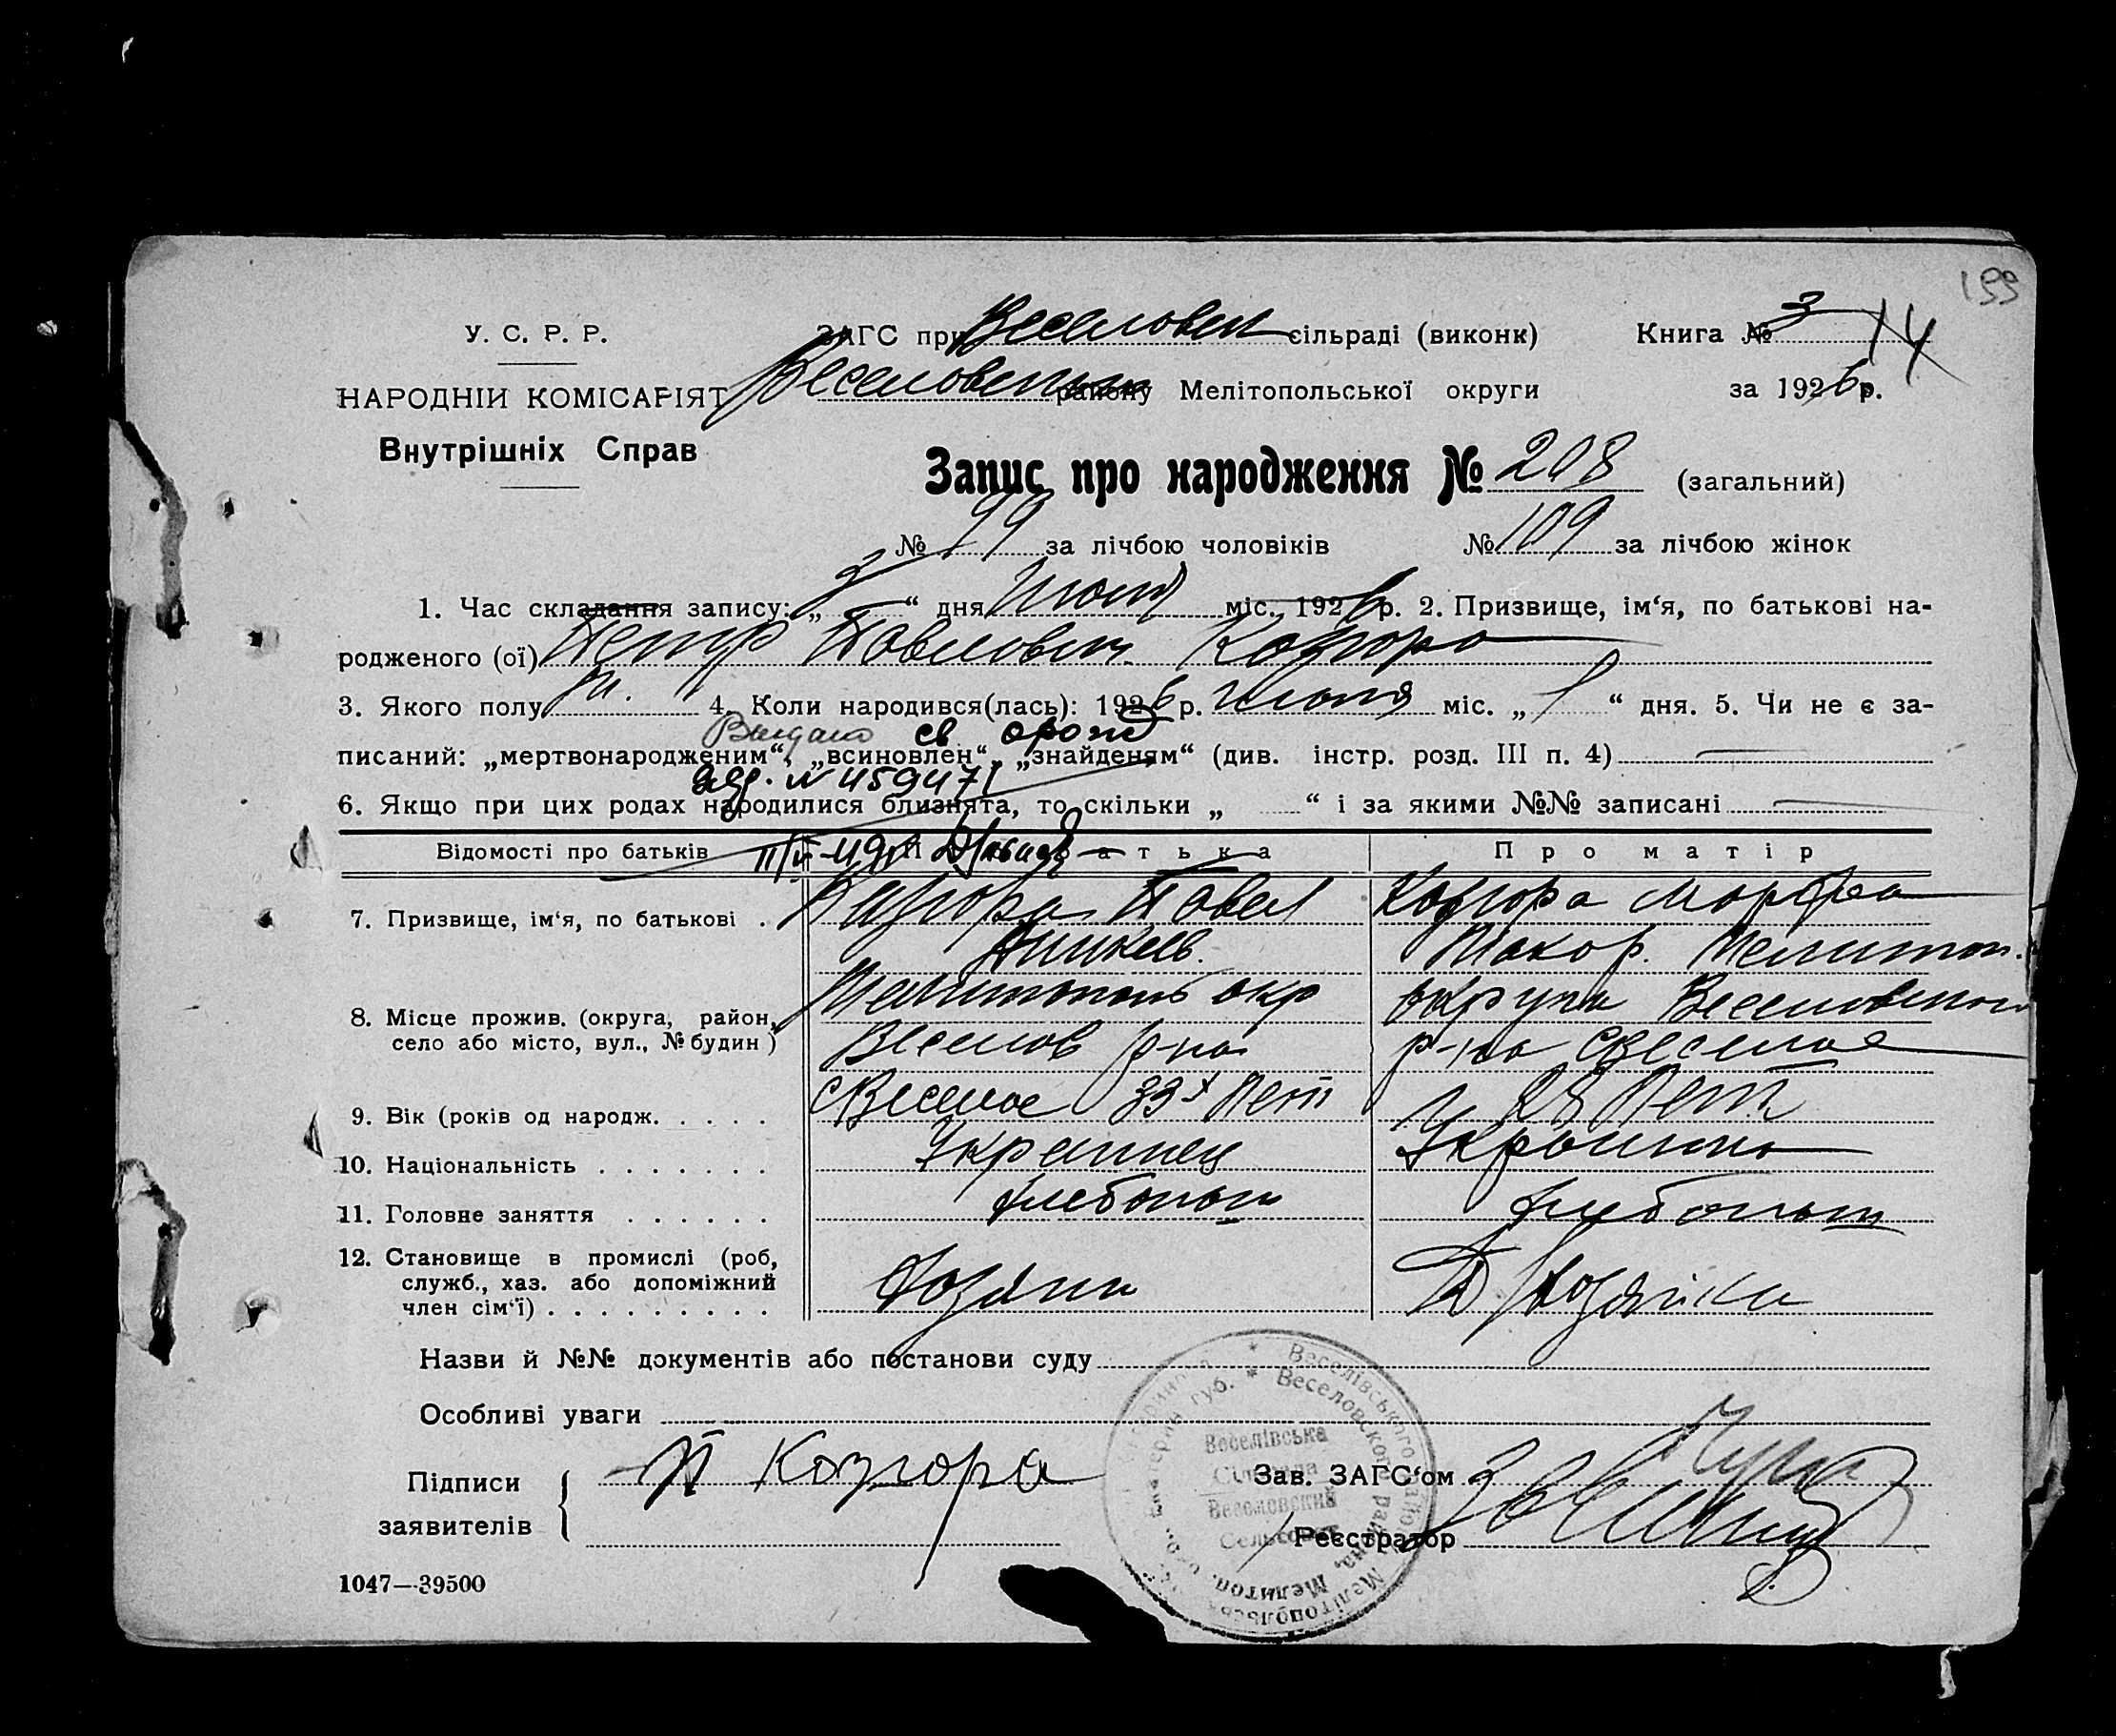 199
У. С. Р. Р.
ЗАГС при Веселовск сільраді (виконк)
Книга № 3 14
НАРОДНІЙ КОМІСАРІЯТ
Веселовськ району Мелітопольської округи
за 1926 р.
Внутрішніх Справ
Запис про народження № 208 (загальний)
№ 99 за лічбою чоловіків № 109 за лічбою жінок
1. Час складання запису: „ “ дня міс., 1926 р. 2. Призвище, ім‘я, по батькові на-
родженого (ої) Петр Павлович Козюра
3. Якого полу м. 4. Коли народився(лась): 1926 р. июля міс. „ 1 “ дня. 5. Чи не є за-
Выдано св о рожд
писаний: „мертвонародженим“, „всиновлен“, „знайденям“ (див. інстр. розд. III п. 4)
№ 459471
6. Якщо при цих родах народилися близнята, то скільки „ “ і за якими №№ записані
Відомості про батьків
Про батька
Про матір
7. Призвище, ім‘я, по батькові .
Козюра Павел
Козюра Марфа
Макар. Мелитоп.
8. Місце прожив. (округа, район, село або місто, вул., № будин)
Мелитополь окр
Веселов р-на
с Веселое
округа Веселовского
р-на с Веселое
9. Вік (років од народж. . . . .
33 лет
28 лет
10. Національність . . . . . . .
Украинец
Украинка
11. Головне заняття . . . . . .
Хлебопаш
Хлебопаш
12. Становище в промислі (роб, служб., хаз. або допоміжний член сім‘ї) . . . . . . . . .
Хозяин
Хозяйка
Назви й №№ документів або постанови суду
Особливі уваги
Підписи заявителів
П Козюра
Зав. ЗАГС‘ом
Реєстратор
Веселівська
Сільрада
Веселовский
Сельсовет
1047—39500